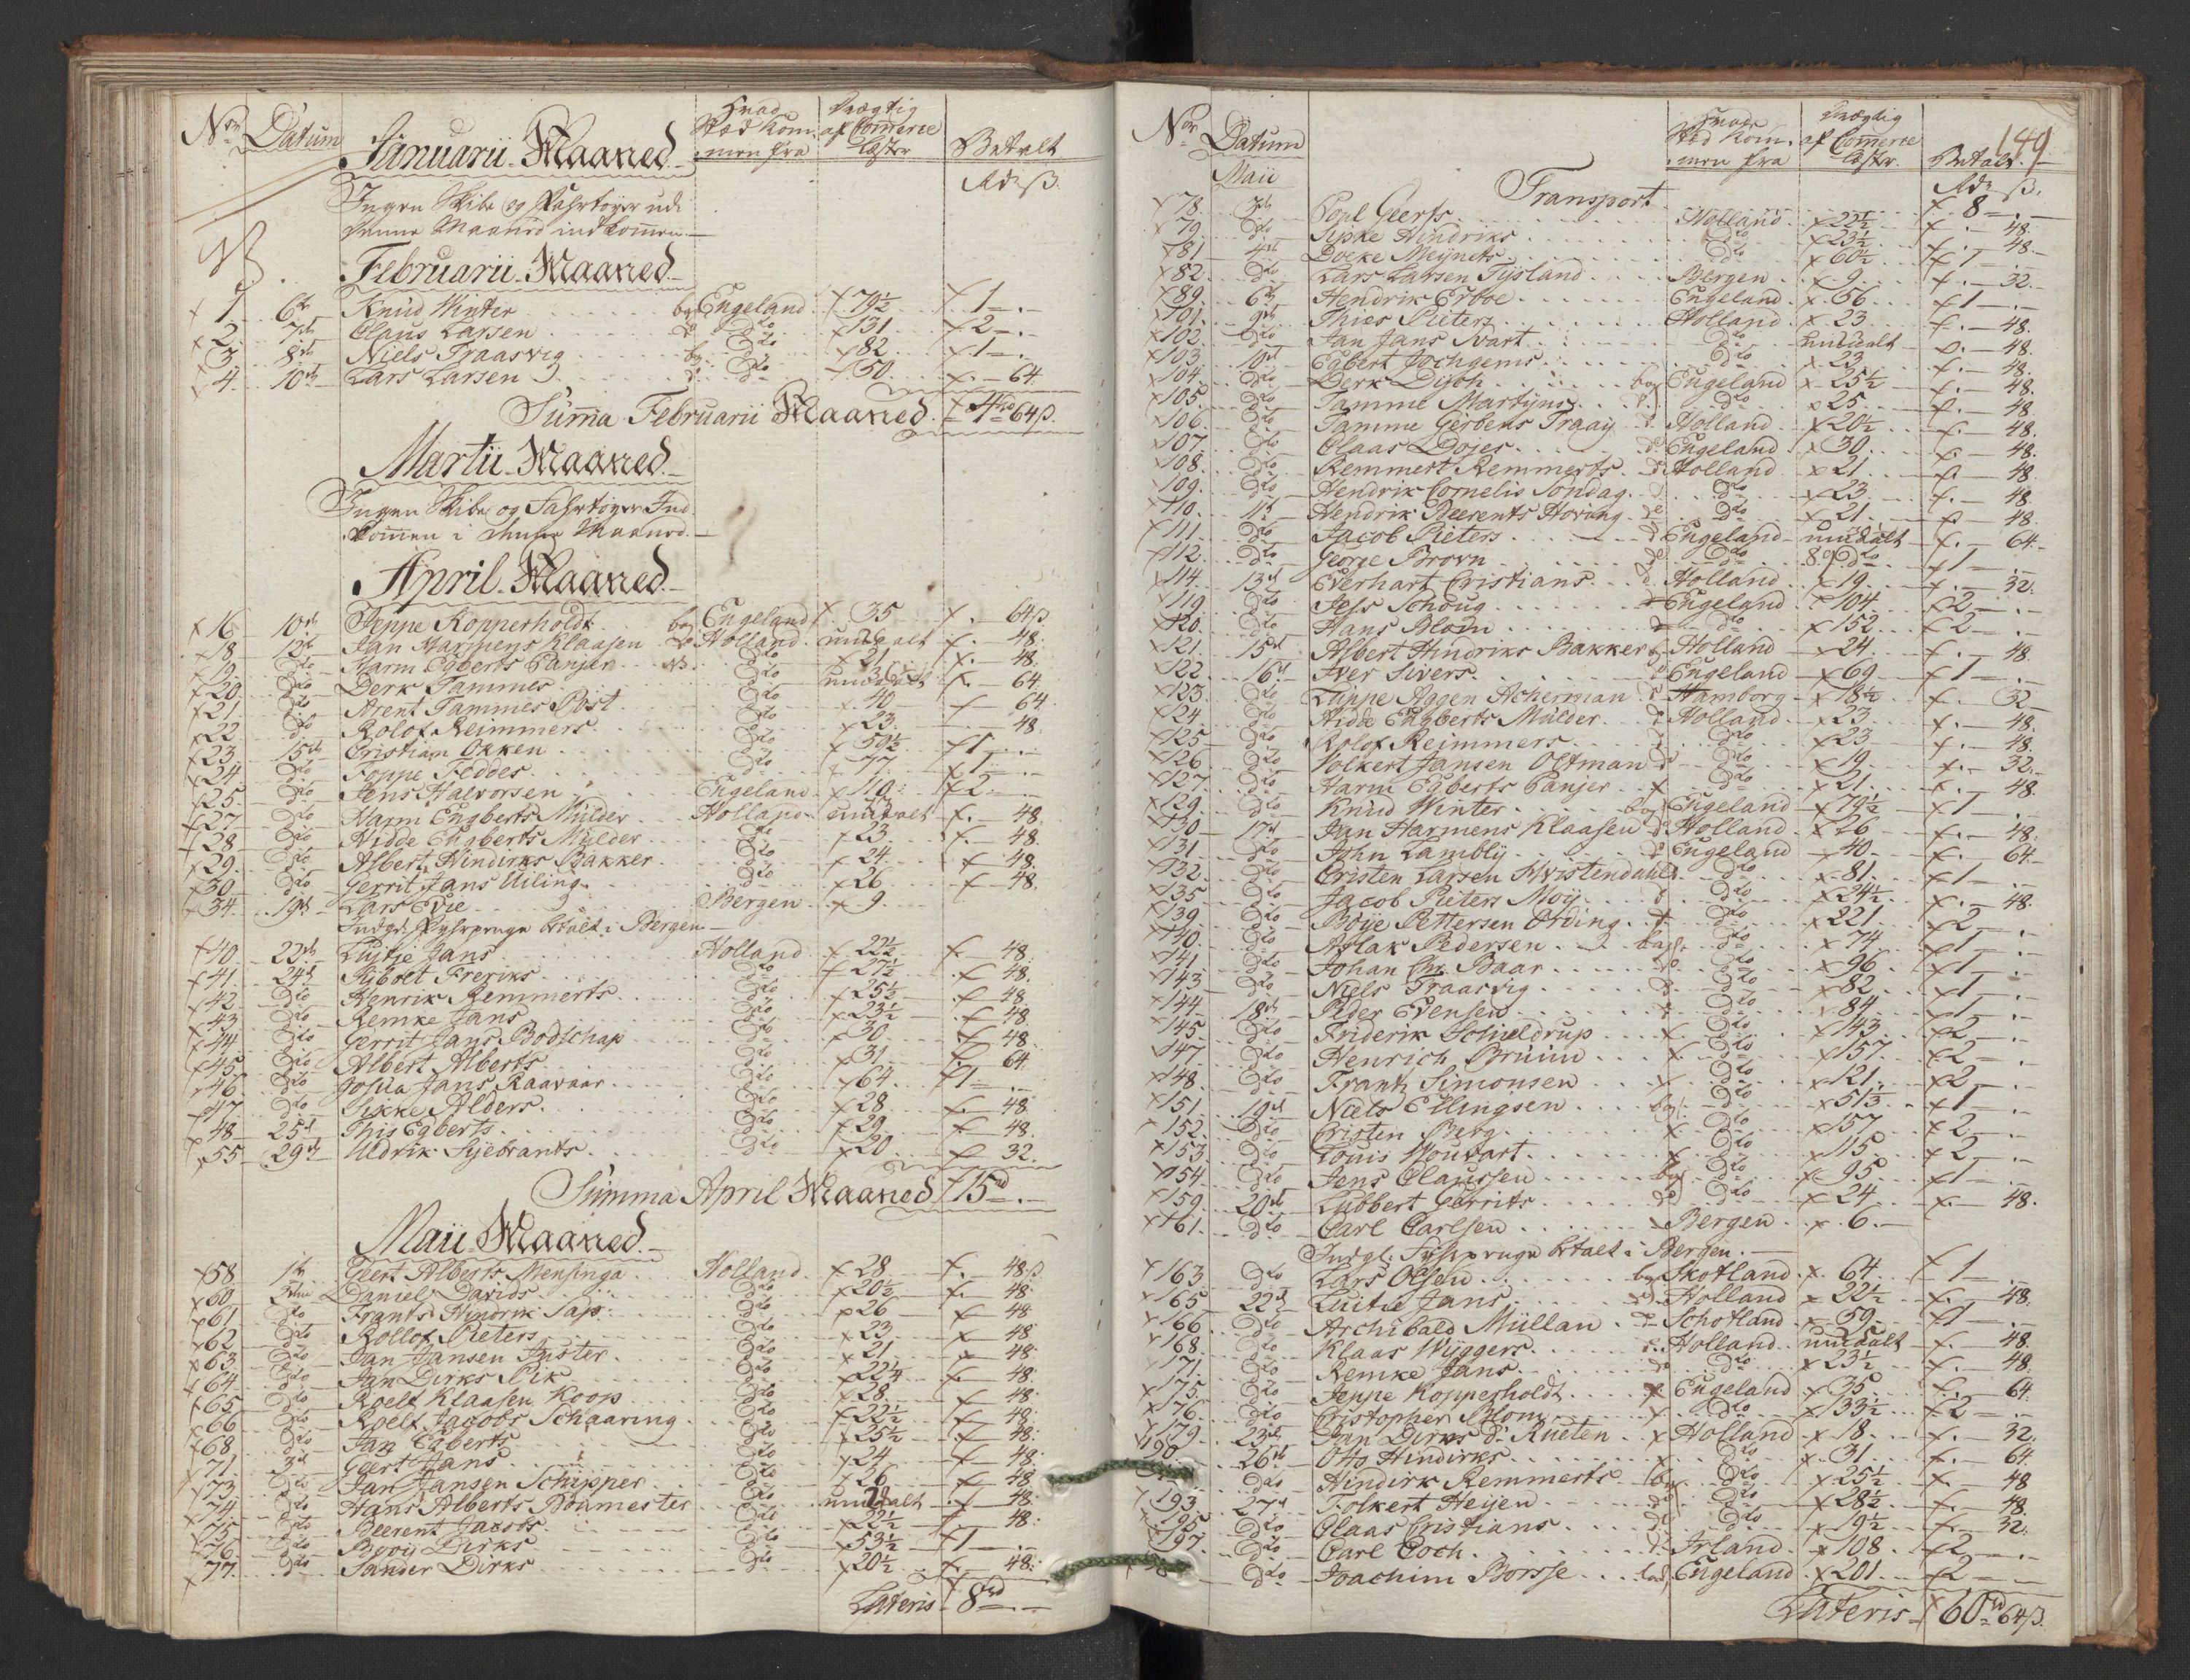 No Datum Januarii Maaned Hvad Stæd kommen fra Drægtig af Comerce Læster Betalt
Rdr ß
Ingen Skibe og Fahrtøyer udi
denne Maaned indkommen
Februarii Maaned
1 6te Knud Winter bag Engeland 79½ 1 -
2 7de Claus Larsen do Dto 131 2 -
3 8de Niels Traasvig bag Dto 82 1 -
4 10de Lars Larsen do Dto 50 - 64
Summa Februarii Maaned 4rd 64ß
Martii Maaned
Ingen Skibe og Fahrtøyer Ind
kommen i denne Maaned
April Maaned
16 10de Jeppe Kopperholdt bag Engeland 35 - 64ß
18 12te Jan Harmens Klaasen do Holland undtalt - 48
19 Dto Harm Egberts Panjer Dto 21 - 48
20 Dto Derk Tammes Dto undtalt - 64
21 Dto Arent Tammes Post Dto 40 - 64
22 Dto Rolof Reimmers Dto 23 - 48
23 15de Cristian Okken Dto 59½ 1 -
24 Dto Foppe Feddes Dto 77 1 -
25 Dto Jens Halvorsen Engeland 119 2 -
27 Dto Harm Engberts Mulder Holland undtalt - 48
28 Dto Hidde Engberts Mulder Dto 23 - 48
29 Dto Albert Hindirks Bakker Dto 24 - 48
30 Dto Gerrit Jans Uiling Dto 26 - 48
34 19de Lars Evie Bergen 9
Indgl. Fyhrpenge betalt i Bergen
40 23de Luitje Jans Holland 22½ - 48
41 24de Sijbolt Freriks Dto 27½ - 48
42 Dto Henrik Remmerts Dto 25½ - 48
43 Dto Remke Jans Dto 23½ - 48
44 Dto Gerrit Jans Bodtschap Dto 30 - 48
45 Dto Albert Alberts Dto 31 - 64
46 Dto Josua Jans Raavaar Dto 64 1 -
47 Dto Sikke Alders Dto 28 - 48
48 25de This Egberts Dto 29 - 48
55 29de Uldrik Sijebrants Dto 20 - 32
Summa April Maaned 15rd -
Maii Maaned
58 1te Geert Alberts Mensinga Holland 28 - 48ß
60 Daniel Davids Dto 20½ - 48
61 Dto Frants Hindrik Sap Dto 26 - 48
62 Dto Rollof Pieters Dto 23 - 48
63 Dto Jan Jansen Juster Dto 21 - 48
64 Dto Jan Dirks Pik Dto 22¼ - 48
65 Dto Roelf Klaasen Koop Dto 28 - 48
66 Dto Roelf Jacobs Schaaring Dto 22½ - 48
68 Dto Jan Egberts Dto 25½ - 48
71 3de Geert Jans Dto 24 - 48
73 Dto Jan Jansen Schipper Dto 26 - 48
74 Dto Hans Alberts Boumester Dto undtalt - 48
75 Dto Beerent Jacobs Dto 22½ - 48
76 Dto Booy Dirks Dto 53½ 1 -
77 Dto Sander Dirks Dto 20½ - 48
Lateris 8rd -
149
No Datum Hvad Stæd kommen fra Drægtig af Comerce Læster Betalt
Maii Transport Rdr ß
8 -
78 3de Popl Geerts Holland 22½ - 48
79 Dto Sipke Hindriks Dto 23½ - 48
81 4de Doeke Meijnets Dto 60½ 1 -
82 Dto Lars Larsen Tijsland Bergen 9 - 32
89 6te Hendrik Erboe Engeland 56 1 -
101 9de Thies Pieters Holland 23 - 48
102 Dto Jan Jans Svart Dto undtalt - 48
103 10de Egbert Jochgems Dto 23 - 48
104 Dto Derk Disch bag Engeland 25½ - 48
105 Dto Tamme Martijns do Dto 25 - 48
106 Dto Tamme Gerbens Traaij do Holland 20½ - 48
107 Dto Claas Dojes do Engeland 30 - 48
108 Dto Remmert Remmerts do Holland 21 - 48
109 Dto Hendrik Cornelis Sondag do Dto 23 - 48
110 11te Hendrik Beerents Hoving do Dto 21 - 48
111 Dto Jacob Pieters do Engeland undtalt - 64
112 Dto George Brovn do Dto 89 Dto 1 -
114 13de Everhart Cristians do Holland 19 - 32
119 Dto Jess Schoug do Engeland 104 2 -
120 Dto Hans Blom Dto 152 2 -
121 15de Albert Hindriks Bakker Holland 24 - 48
122 16de Iver Sivers do Engeland 69 1 -
123 Dto Luppe Aggen Acherman do Hamborg 18½ - 32
124 Dto Hidde Engberts Mulder do Holland 23 - 48
125 Dto Rolof Reimmers Dto 23 - 48
126 Dto Volkert Jansen Oltman do Dto 19 - 32
127 Dto Harm Egberts Panjer Dto 21 - 48
129 Dto Knud Winter bag Engeland 79½ 1 -
130 17de Jan Harmens Klaasen do Holland 26 - 48
131 Dto John Lamblij do Engeland 40 - 64
132 Dto Cristen Larsen Hvistendahl Dto 81 1 -
135 Dto Jacob Pieters Moij Dto 24½ - 48
139 Dto Boije Pettersen Ording Dto 221 2 -
140 Dto Aslak Pedersen bag Dto 74 1 -
141 Dto Johan Chr. Baar do Dto 96 1 -
143 Dto Niels Traasvig Dto 82 1 -
144 18de Peder Evensen Dto 84 1 -
145 Dto Friderik Schieldrup Dto 143 2 -
147 Dto Henrich Bruun Dto 157 2 -
148 Dto Frantz Simonsen Dto 121 2 -
151 19de Niels Ellingsen bag Dto 51⅓ 1 -
152 Dto Cristen Berg Dto 157 2 -
153 Dto Louis Houtart Dto 115 2 -
154 Dto Jens Claussen bag Dto 95 1 -
159 20de Lubbert Gerrits do Dto 24 - 48
161 Dto Carl Carlsen Bergen 6
Indgl. Fyhrpenge betalt i Bergen
163 Dto Lars Olsen bag Skotland 64 1 -
165 22de Luitie Jans do Holland 22½ - 48
166 Dto Archibald Müllan do Schotland 59 1 -
168 Dto Klaas Wyggers do Holland undtalt - 48
171 Dto Remke Jans do Dto 23½ - 48
175 Dto Jeppe Kopperholdt Engeland 35 - 64
176 Dto Cristopher Blom Dto 133½ 2 -
179 23de Jan Dirks d. Rueten Holland 18 - 32
190 26de Otto Hindirks Dto 31 - 64
Dto Hindirk Remmerts bag Dto 25½ - 48
193 27de Folkert Heijen do Dto 28½ - 48
195 Dto Claas Cristians do Dto 19½ - 32
197 Dto Carl Coch Irland 108 2 -
Dto Joachim Borsse bag Engeland 201 2 -
Lateris 60rd 64ß